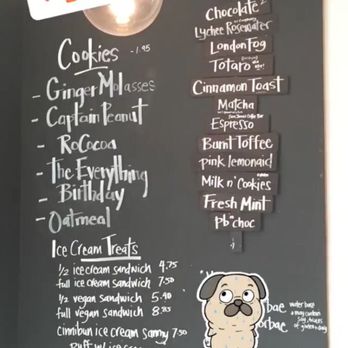 Cookies -1.95
- Ginger Molasses
- Captain Peanut
- RoCocoa
- The Everything
- Birthday
- Oatmeal
Ice Cream Treats
1/2 ice cream sandwich 4.75
full ice cream sandwich 7.50
1/2 vegan sandwich 5.40
full vegan sandwich 8.85
cinnibun ice cream sammy 7.50
Chocolate
Lychee Rosewater
London Fog
Totaro
Cinnamon Toast
Matcha
Espresso
Burnt Toffee
pink lemonaid
Milk n' Cookies
Fresh Mint
Pb n choc
:)
bae
orbae